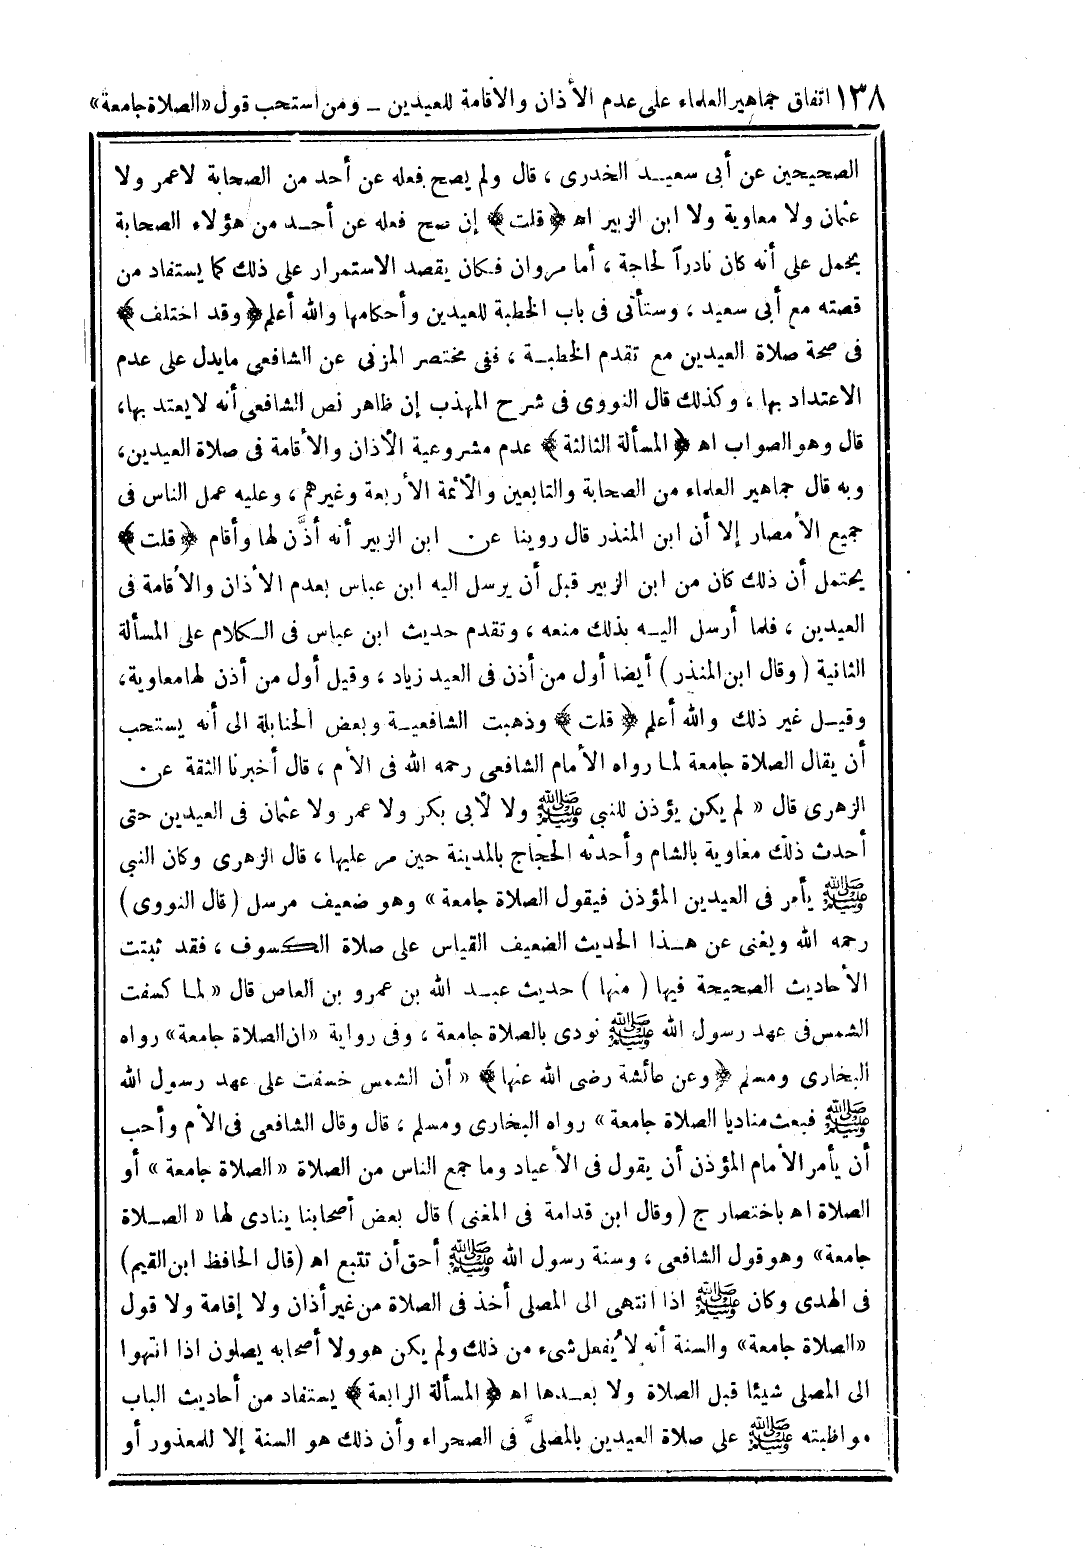 ١٣٨ اتفاق جماهير العلماء على عدم الأذان والاقامة للعيدين ــ ومن استحب قول «الصلاة جامعة»
الصحيحين عن أبى سعيد الخدرى ، قال ولم يصح فعله عن أحد من الصحابة لاعمر ولا
عثمان ولا معاوية ولا ابن الزبير اه ﴿ قلت ﴾ إن صح فعله عن أحد من هؤلاء الصحابة
يحمل على أنه كان نادراً لحاجة ، أما مروان فكان يقصد الاستمرار على ذلك كما يستفاد من
قصته مع أبى سعيد ، وستأتى فى باب الخطبة للعيدين وأحكامها والله أعلم ﴿ وقد اختلف ﴾
فى صحة صلاة العيدين مع تقدم الخطبة ، ففى مختصر المزنى عن الشافعى مايدل على عدم
الاعتداد بها ، وكذلك قال النووى فى شرح المهذب إن ظاهر نص الشافعى أنه لايعتد بها،
قال وهو الصواب اه ﴿ المسألة الثالثة ﴾ عدم مشروعية الأذان والأقامة فى صلاة العيدين،
وبه قال جماهير العلماء من الصحابة والتابعين والأئمة الأربعة وغيرهم ، وعليه عمل الناس فى
جميع الأمصار إلا أن ابن المنذر قال روينا عن ابن الزبير أنه أذَّن لها وأقام ﴿ قلت ﴾
يحتمل أن ذلك كان من ابن الزبير قبل أن يرسل اليه ابن عباس بعدم الأذان والأقامة فى
العيدين ، فلما أرسل اليه بذلك منعه ، وتقدم حديث ابن عباس فى الكلام على المسألة
الثانية ( وقال ابن المنذر ) أيضا أول من أذن فى العيد زياد ، وقيل أول من أذن لها معاوية،
وقيل غير ذلك والله أعلم ﴿ قلت ﴾ وذهبت الشافعية وبعض الحنابلة الى أنه يستحب
أن يقال الصلاة جامعة لما رواه الأمام الشافعى رحمه الله فى الأم ، قال أخبرنا الثقة عن
الزهرى قال « لم يكن يؤذن للنبي ﷺ ولا لأبى بكر ولا عمر ولا عثمان فى العيدين حتى
أحدث ذلك معاوية بالشام وأحدثه الحجاج بالمدينة حين مر عليها ، قال الزهرى وكان النبى
ﷺ يأمر فى العيدين المؤذن فيقول الصلاة جامعة » وهو ضعيف مرسل ( قال النووى )
رحمه الله ويغنى عن هذا الحديث الضعيف القياس على صلاة الكسوف ، فقد ثبتت
الأحاديث الصحيحة فيها ( منها ) حديث عبد الله بن عمرو بن العاص قال « لما كسفت
الشمس فى عهد رسول الله ﷺ نودى بالصلاة جامعة ، وفى رواية «ان الصلاة جامعة» رواه
البخارى ومسلم ﴿ وعن عائشة رضى الله عنها ﴾ « أن الشمس خسفت على عهد رسول الله
ﷺ فبعث مناديا الصلاة جامعة » رواه البخارى ومسلم ، قال وقال الشافعى فى الأم وأحب
أن يأمر الأمام المؤذن أن يقول فى الأعياد وما جمع الناس من الصلاة « الصلاة جامعة » أو
الصلاة اه باختصار ج ( وقال ابن قدامة فى المغنى ) قال بعض أصحابنا ينادى لها « الصلاة
جامعة» وهو قول الشافعى ، وسنة رسول الله ﷺ أحق أن تتبع اه (قال الحافظ ابن القيم)
فى الهدى وكان ﷺ اذا انتهى الى المصلى أخذ فى الصلاة من غير أذان ولا إقامة ولا قول
«الصلاة جامعة» والسنة أنه لا يُفعل شىء من ذلك ولم يكن هو ولا أصحابه يصلون اذا انتهوا
الى المصلى شيئا قبل الصلاة ولا بعدها اه ﴿ المسألة الرابعة ﴾ يستفاد من أحاديث الباب
مواظبته ﷺ على صلاة العيدين بالمصلىَّ فى الصحراء وأن ذلك هو السنة إلا للمعذور أو